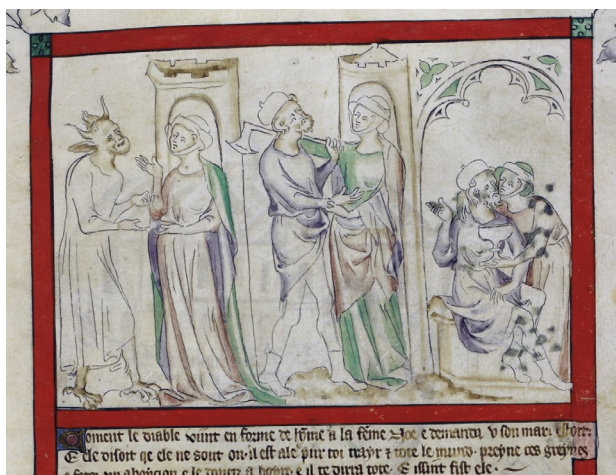 Coment le diable vint en forme de hõme a la feme Noe e demanda v son mari estoit:
E ele disoit qe ele ne sout ou· il est ale pur toi trayr e tote le mund· preyne ces greynes
e un aboycion e le donez a boyre· e il te dirra tote· E issint fist ele·